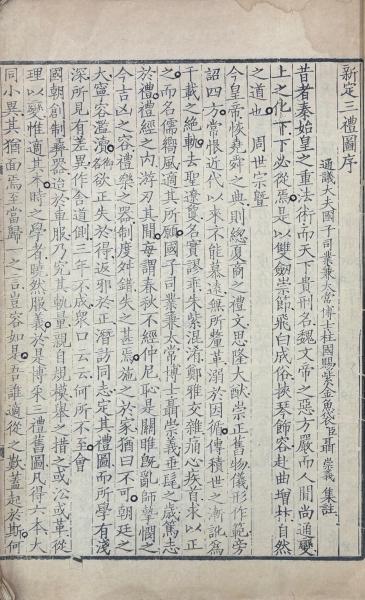 新定三禮圖序
通議大夫國子司業兼太常博士柱國賜紫金魚袋臣聶 崇義 集註
昔者秦始皇之重法術而天下貴刑名魏文帝之惡方嚴而人間尚通變
上之化下下必從焉是以雙劒崇節飛白成俗挾琴飾容赴曲增抃自然
之道也 周世宗暨
今皇帝恢堯舜之典則總夏商之禮文思隆大猷崇正舊物儀形作範旁
詔四方常恨近代以來不能慕遠無所釐革溺於因循傳積世之漸訛為
千載之絶軌去聖遼敻名實謬乖朱紫混淆鄭雅交雜痛心疾首求以正
之而名儒嚮風適其所願國子司業兼太常博士聶崇義垂髦之歲篤志
於禮禮經之內游刃其間每謂春秋不經仲尼耻是關雎旣亂師摯憫之
今吉凶之容禮樂之器制度舛錯失之甚焉施之於家猶曰不可朝廷之
大寧容濫瀆御名欲正失於得返邪於正潛訪同志定其禮圖而所學有淺
深所見有差異作舍道側三年不成衆口云云何所不至會
國朝創制彝器迨於車服乃究其軌量親自規模舉之措之或沿或革從
理以變惟適其本時之學者曉然服義於是博采三禮舊圖凡得六本大
同小異其猶面焉至當歸一之言豈容如是吾誰適從之歎蓋起於斯何